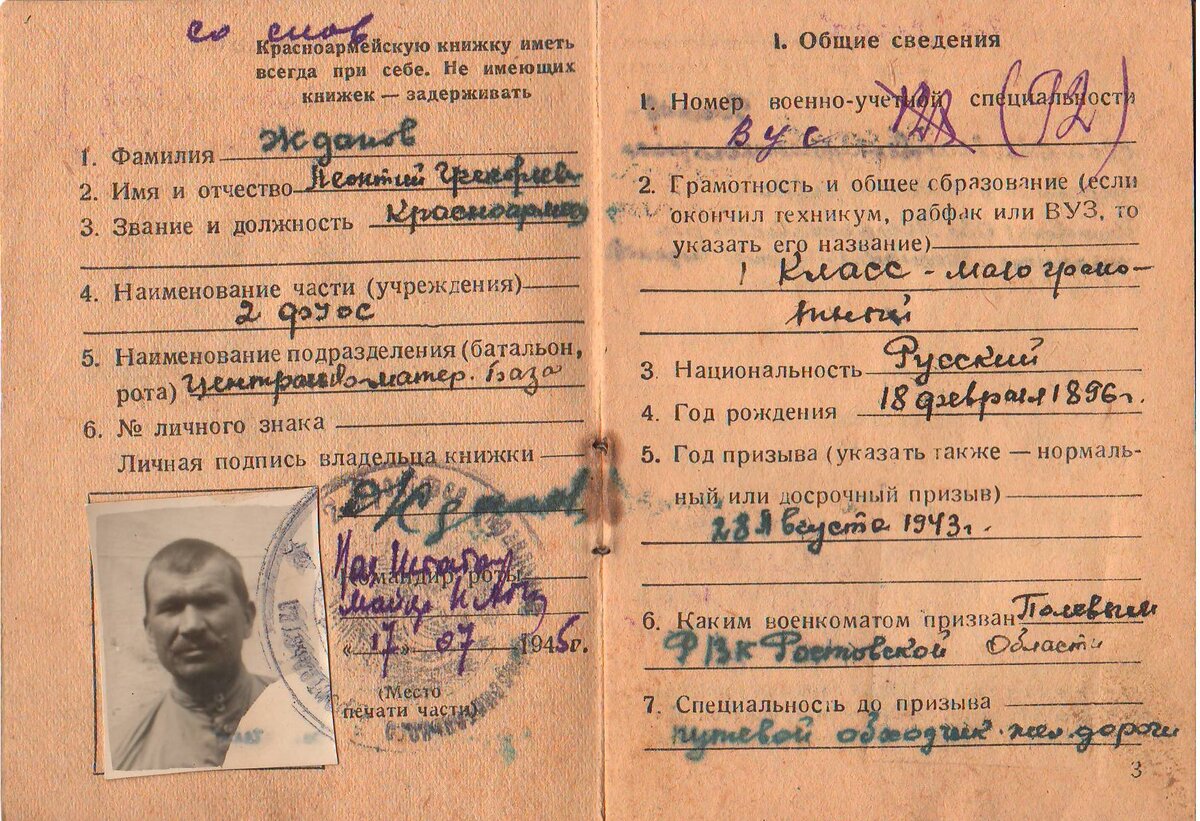 со слов
Красноармейскую книжку иметь
всегда при себе. Не имеющих
книжек — задерживать
1. Фамилия Жданов
2. Имя и отчество Леонтий
3. Звание и должность Красноармеец
4. Наименование части (учреждения)
2 ФУОС
5. Наименование подразделения (батальон,
рота) матер. База
6. № личного знака
Личная подпись владельца книжки
Жданов
Нач Штаба
Командир роты
майор
«17» 07 1945г.
(Место
печати части)
1. Общие сведения
1. Номер военно-учетной специальности
ВУС (92)
2. Грамотность и общее образование (если
окончил техникум, рабфак или ВУЗ, то
указать его название)
1 класс - малограмо-
тный
3 Национальность Русский
4. Год рождения 18 февраля 1896г.
5. Год призыва (указать также — нормаль-
ный или досрочный призыв)
28 Августа 1943г.
6. Каким военкоматом призван Полевым
РВК Ростовской Области
7. Специальность до призыва
путевой обходчик жел. дороги
3